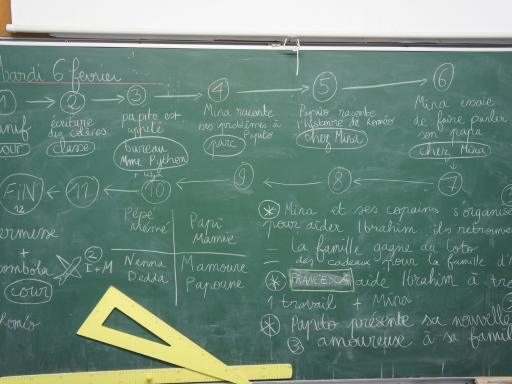 mardi 6 février
1 → 2 → 3 → 4 → 5 → 6
manif
cour
écriture
des colères
classe
papito est
appelé
bureau
Mme Python
Mina raconte
ses problèmes à
Papito
parc
Papito raconte
l'histoire de Roméo
chez Mina
Mina essaie
de faire parler
son papa
chez Mina
FiN 12 ← 11 ← 10 ← 9 ← 8 ← 7
Pépé
Mémé
Papi
Mamie
Nanna
Dedda
Mamoune
Papoune
kermesse
+
tombola
cour
Roméo
2
I + M
* Mina et ses copains s'organise
pour aider Ibrahim ils retrouve
- la famille gagne au loto
- des cadeaux pour la famille d'I
* FRANCESCA aide Ibrahim à tro
1 travail + Mina
* Papito présente sa nouvelle
3 amoureuse à sa famil